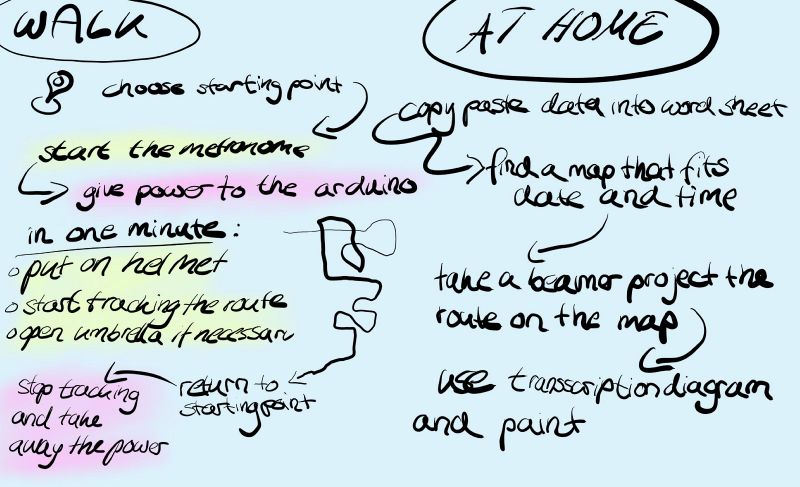 WALK
choose starting point
start the metronome
give power to the arduino
in one minute:
o put on helmet
o start tracking the route
o open umbrella if necessary
return to
startingpoint
stop tracking
and take
away the power
AT HOME
copy paste data into word sheet
find a map that fits
date and time
take a beamer project the
route on the map
use transscriptiondiagram
and paint